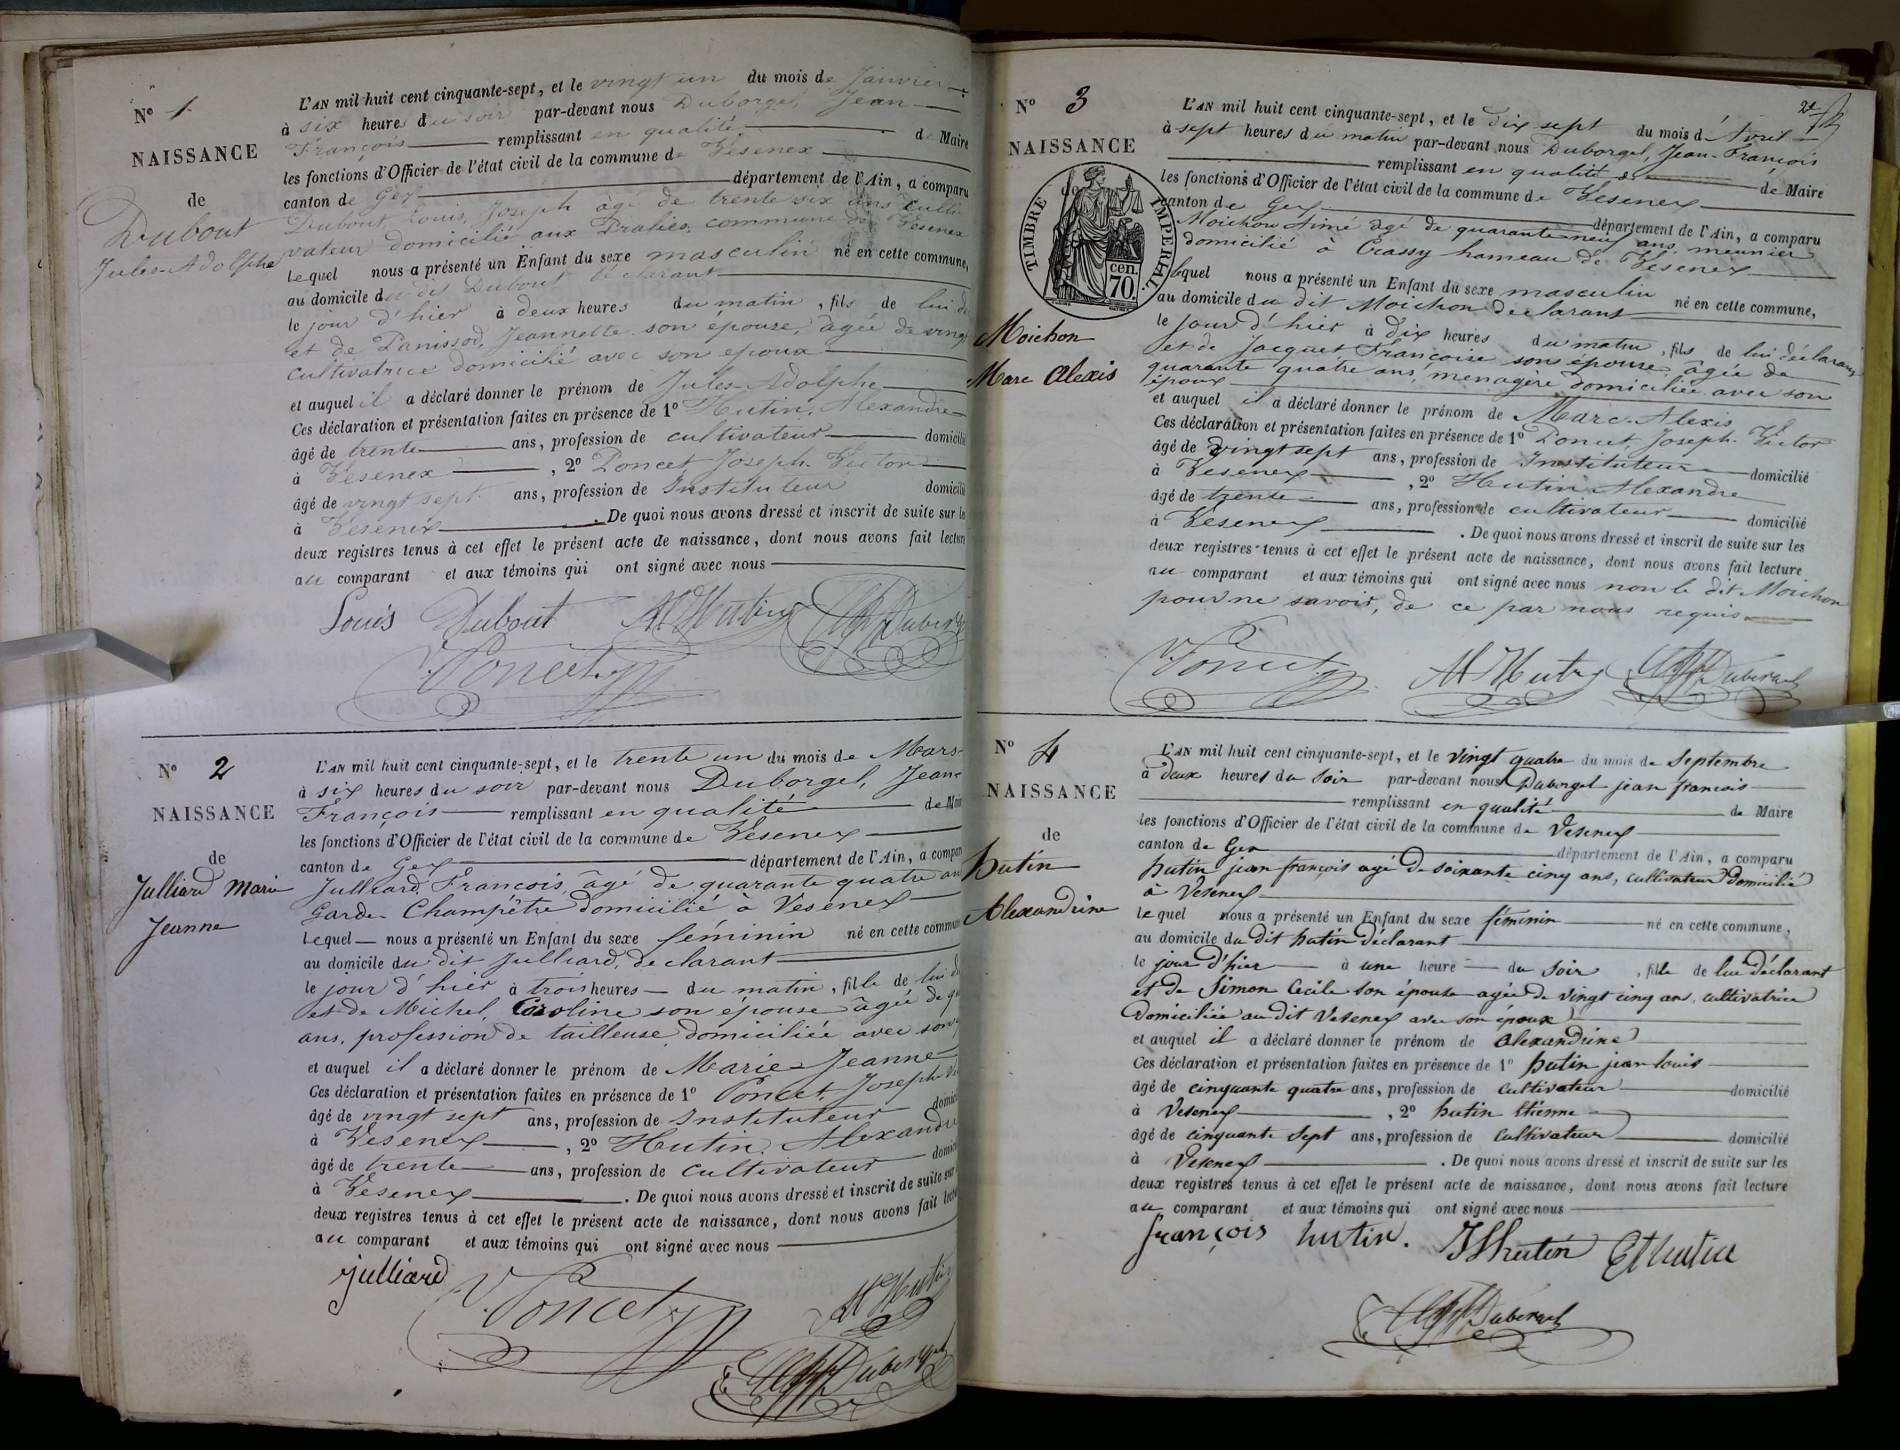 N° 1
NAISSANCE
de
Dubout
Jules-Adolphe
L'AN mil huit cent cinquante-sept, et le vingt un du mois de Janvier
à six heures du soir par-devant nous Duborgel, Jean
François remplissant en qualité de Maire
les fonctions d'Officier de l'état civil de la commune de Vesenex
canton de Gex département de l'Ain, a comparu
Dubout, Louis, Joseph âgé de trente six ans culti
vateur domicilié aux Pralies, commune de Vesenex
lequel nous a présenté un Enfant du sexe masculin né en cette commune,
au domicile du dit Dubout déclarant
le jour d'hier à deux heures du matin, fils de lui
et de Panissod, Jeannette son épouse, âgée de vingt
cultivatrice domicilié avec son époux
et auquel il a déclaré donner le prénom de Jules-Adolphe
Ces déclaration et présentation faites en présence de 1° Hutin, Alexandre
âgé de trente ans, profession de cultivateur domicilié
à Vesenex, 2° Poncet Joseph Victor
âgé de vingt sept ans, profession de Instituteur domicilié
à Vesenex. De quoi nous avons dressé et inscrit de suite sur
deux registres tenus à cet effet le présent acte de naissance, dont nous avons fait lecture
au comparant et aux témoins qui ont signé avec nous
Louis Dubout Al Hutin Duborgel
V. Poncet
N° 2
NAISSANCE
de
Julliard Marie
Jeanne
L'AN mil huit cent cinquante-sept, et le trente un du mois de Mars
à six heures du soir par-devant nous Duborgel, Jean
François remplissant en qualité de Maire
les fonctions d'Officier de l'état civil de la commune de Vesenex
canton de Gex département de l'Ain, a comparu
Julliard, François, âgé de quarante quatre ans
Garde Champêtre domicilié à Vesenex
lequel nous a présenté un Enfant du sexe féminin né en cette commune
au domicile du dit Julliard, déclarant
le jour d'hier à trois heures du matin, fille de lui
et de Michel, Caroline son épouse âgée de
ans, profession de tailleuse domiciliée avec son
et auquel il a déclaré donner le prénom de Marie-Jeanne
Ces déclaration et présentation faites en présence de 1° Poncet, Joseph
âgé de vingt sept ans, profession de Instituteur
à Vesenex, 2° Hutin, Alexandre
âgé de trente ans, profession de cultivateur
à Vesenex. De quoi nous avons dressé et inscrit de suite sur
deux registres tenus à cet effet le présent acte de naissance, dont nous avons fait lecture
au comparant et aux témoins qui ont signé avec nous
Julliard V. Poncet Al Hutin
Duborgel
N° 3
NAISSANCE
de
TIMBRE IMPERIAL.
70. cen.
Moichon
Marc Alexis
L'AN mil huit cent cinquante-sept, et le dix sept du mois d'Avril
à sept heures du matin par-devant nous Duborgel, Jean-François
remplissant en qualité de Maire
les fonctions d'Officier de l'état civil de la commune de Vesenex
canton de Gex département de l'Ain, a comparu
Moichon Aimé âgé de quarante neuf ans, meunier
domicilié à Crassy hameau de Vesenex
lequel nous a présenté un Enfant du sexe masculin né en cette commune,
au domicile du dit Moichon déclarant
le jour d'hier à dix heures du matin, fils de lui déclarant
et de Jacquet Françoise son épouse, âgée de
quarante quatre ans, menagère domiciliée avec son
époux
et auquel il a déclaré donner le prénom de Marc-Alexis
Ces déclaration et présentation faites en présence de 1° Poncet, Joseph Victor
âgé de vingt sept ans, profession de Instituteur domicilié
à Vesenex, 2° Hutin Alexandre
âgé de trente ans, profession de cultivateur domicilié
à Vesenex. De quoi nous avons dressé et inscrit de suite sur les
deux registres tenus à cet effet le présent acte de naissance, dont nous avons fait lecture
au comparant et aux témoins qui ont signé avec nous non le dit Moichon
pour ne savoir, de ce par nous requis
V. Poncet Al Hutin Duborgel
N° 4
NAISSANCE
de
hutin
Alexandrine
L'AN mil huit cent cinquante-sept, et le vingt quatre du mois de Septembre
à deux heures du soir par-devant nous Duborgel jean françois
remplissant en qualité de Maire
les fonctions d'Officier de l'état civil de la commune de Vesenex
canton de Gex département de l'Ain, a comparu
hutin jean françois agé de soixante cinq ans, cultivateur domicilié
à Vesenex
lequel nous a présenté un Enfant du sexe féminin né en cette commune,
au domicile du dit hutin déclarant
le jour d'hier à une heure du soir, fille de lui déclarant
et de Simon Cecile son épouse agée de vingt cinq ans, cultivatrice
domiciliée au dit Vesenex avec son époux
et auquel il a déclaré donner le prénom de Alexandrine
Ces déclaration et présentation faites en présence de 1° hutin jean louis
âgé de cinquante quatre ans, profession de Cultivateur domicilié
à Vesenex, 2° hutin Etienne
âgé de cinquante sept ans, profession de Cultivateur domicilié
à Vesenex. De quoi nous avons dressé et inscrit de suite sur les
deux registres tenus à cet effet le présent acte de naissance, dont nous avons fait lecture
au comparant et aux témoins qui ont signé avec nous
françois hutin. JLhutin Et hutin
Duborgel